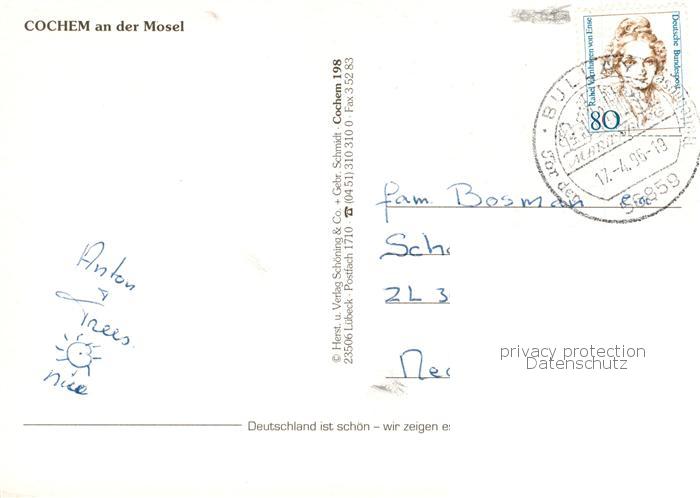 COCHEM an der Mosel
Deutsche Bundespost
Rahel Varnhagen von Ense
80
BULLAY
17.-4.96-19
56859
Vor den
© Herst. u. Verlag Schöning & Co. + Gebr. Schmidt · Cochem 198
23506 Lübeck · Postfach 1710 · ☎ (04 51) 310 310 0 · Fax 3 52 83
fam. Bosman en
Sch
2L 3
Ned
Anton
+
Trees.
nice
privacy protection
Datenschutz
Deutschland ist schön – wir zeigen es